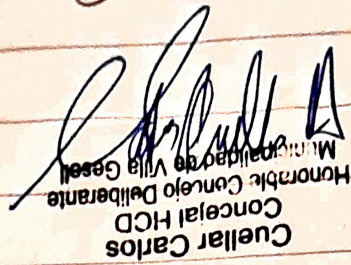 Cuellar Carlos
Concejal HCD
Honorable Concejo Deliberante
Municipalidad de Villa Gesell